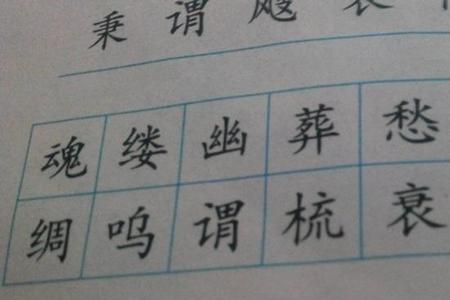 秉谓飕衰
魂缕幽葬愁
绸呜谓梳衰